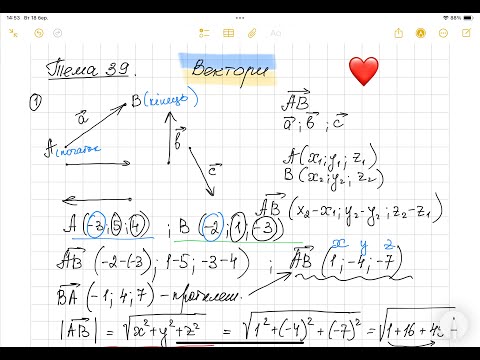 14:53 Вт 18 бер.
88%
Тема 39. Вектори
① a⃗ B (кінець) AB⃗
A (початок b⃗ a⃗ ; b⃗ ; c⃗
c⃗ A (x₁; y₁; z₁)
B (x₂; y₂; z₂)
AB⃗ (x₂-x₁; y₂-y₂; z₂-z₁)
A (-3; 5; 4) ; B (-2; 1; -3)
x y z
AB⃗ (-2-(-3); 1-5; -3-4) ; AB⃗ (1; -4; -7)
BA⃗ (-1; 4; 7) - протилеж.
|AB⃗| = √x²+y²+z² = √1²+(-4)²+(-7)² = √1+16+49